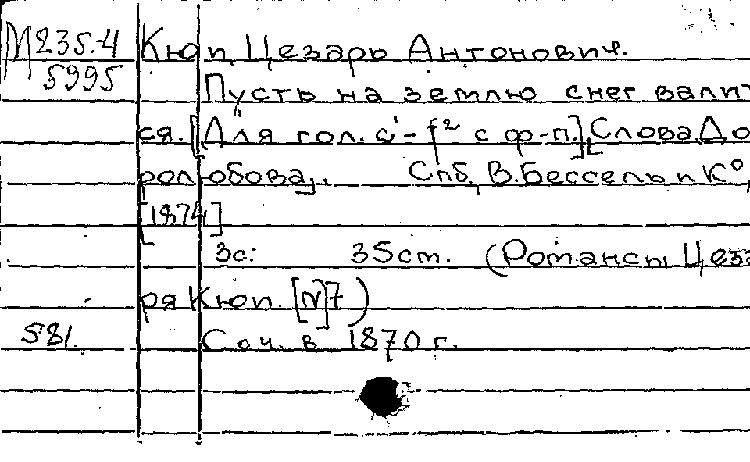 М 235.4 Кюи, Цезарь Антонович.
5995
Пусть на землю снег валит
ся. [Для гол. c'-f² с ф-п.], [Слова До
ролюбова]. Спб., В. Бессель и К°,
[1874]
3с. 35 ст. (Романсы Цеза
ря Кюи. [N]7)
581. Соч. в 1870 г.